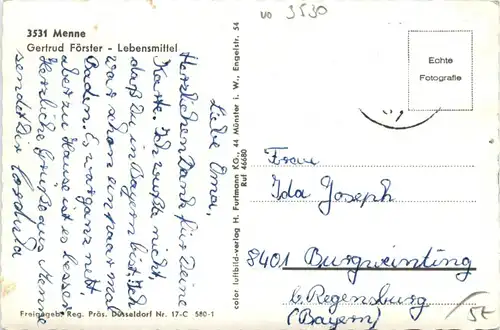 vo 3530
3531 Menne
Gertrud Förster - Lebensmittel
Liebe Oma,
Herzlichen Dank für Deine
Karte. Ich wußte nicht
daß Du in Bayern bist. Ich
war schon ein paar mal
Baden. Es war ganz nett
aber zu Hause ist es besser
Herzliche Grüße aus Menne
sendet Dir Cordula
color luftbild-verlag H. Furtmann KG., 44 Münster i. W., Engelstr. 54
Ruf 46680
Echte
Fotografie
Frau
Ida Joseph
8401 Burgweinting
b. Regensburg
(Bayern)
Freigegeb. Reg. Präs. Düsseldorf Nr. 17-C 580-1